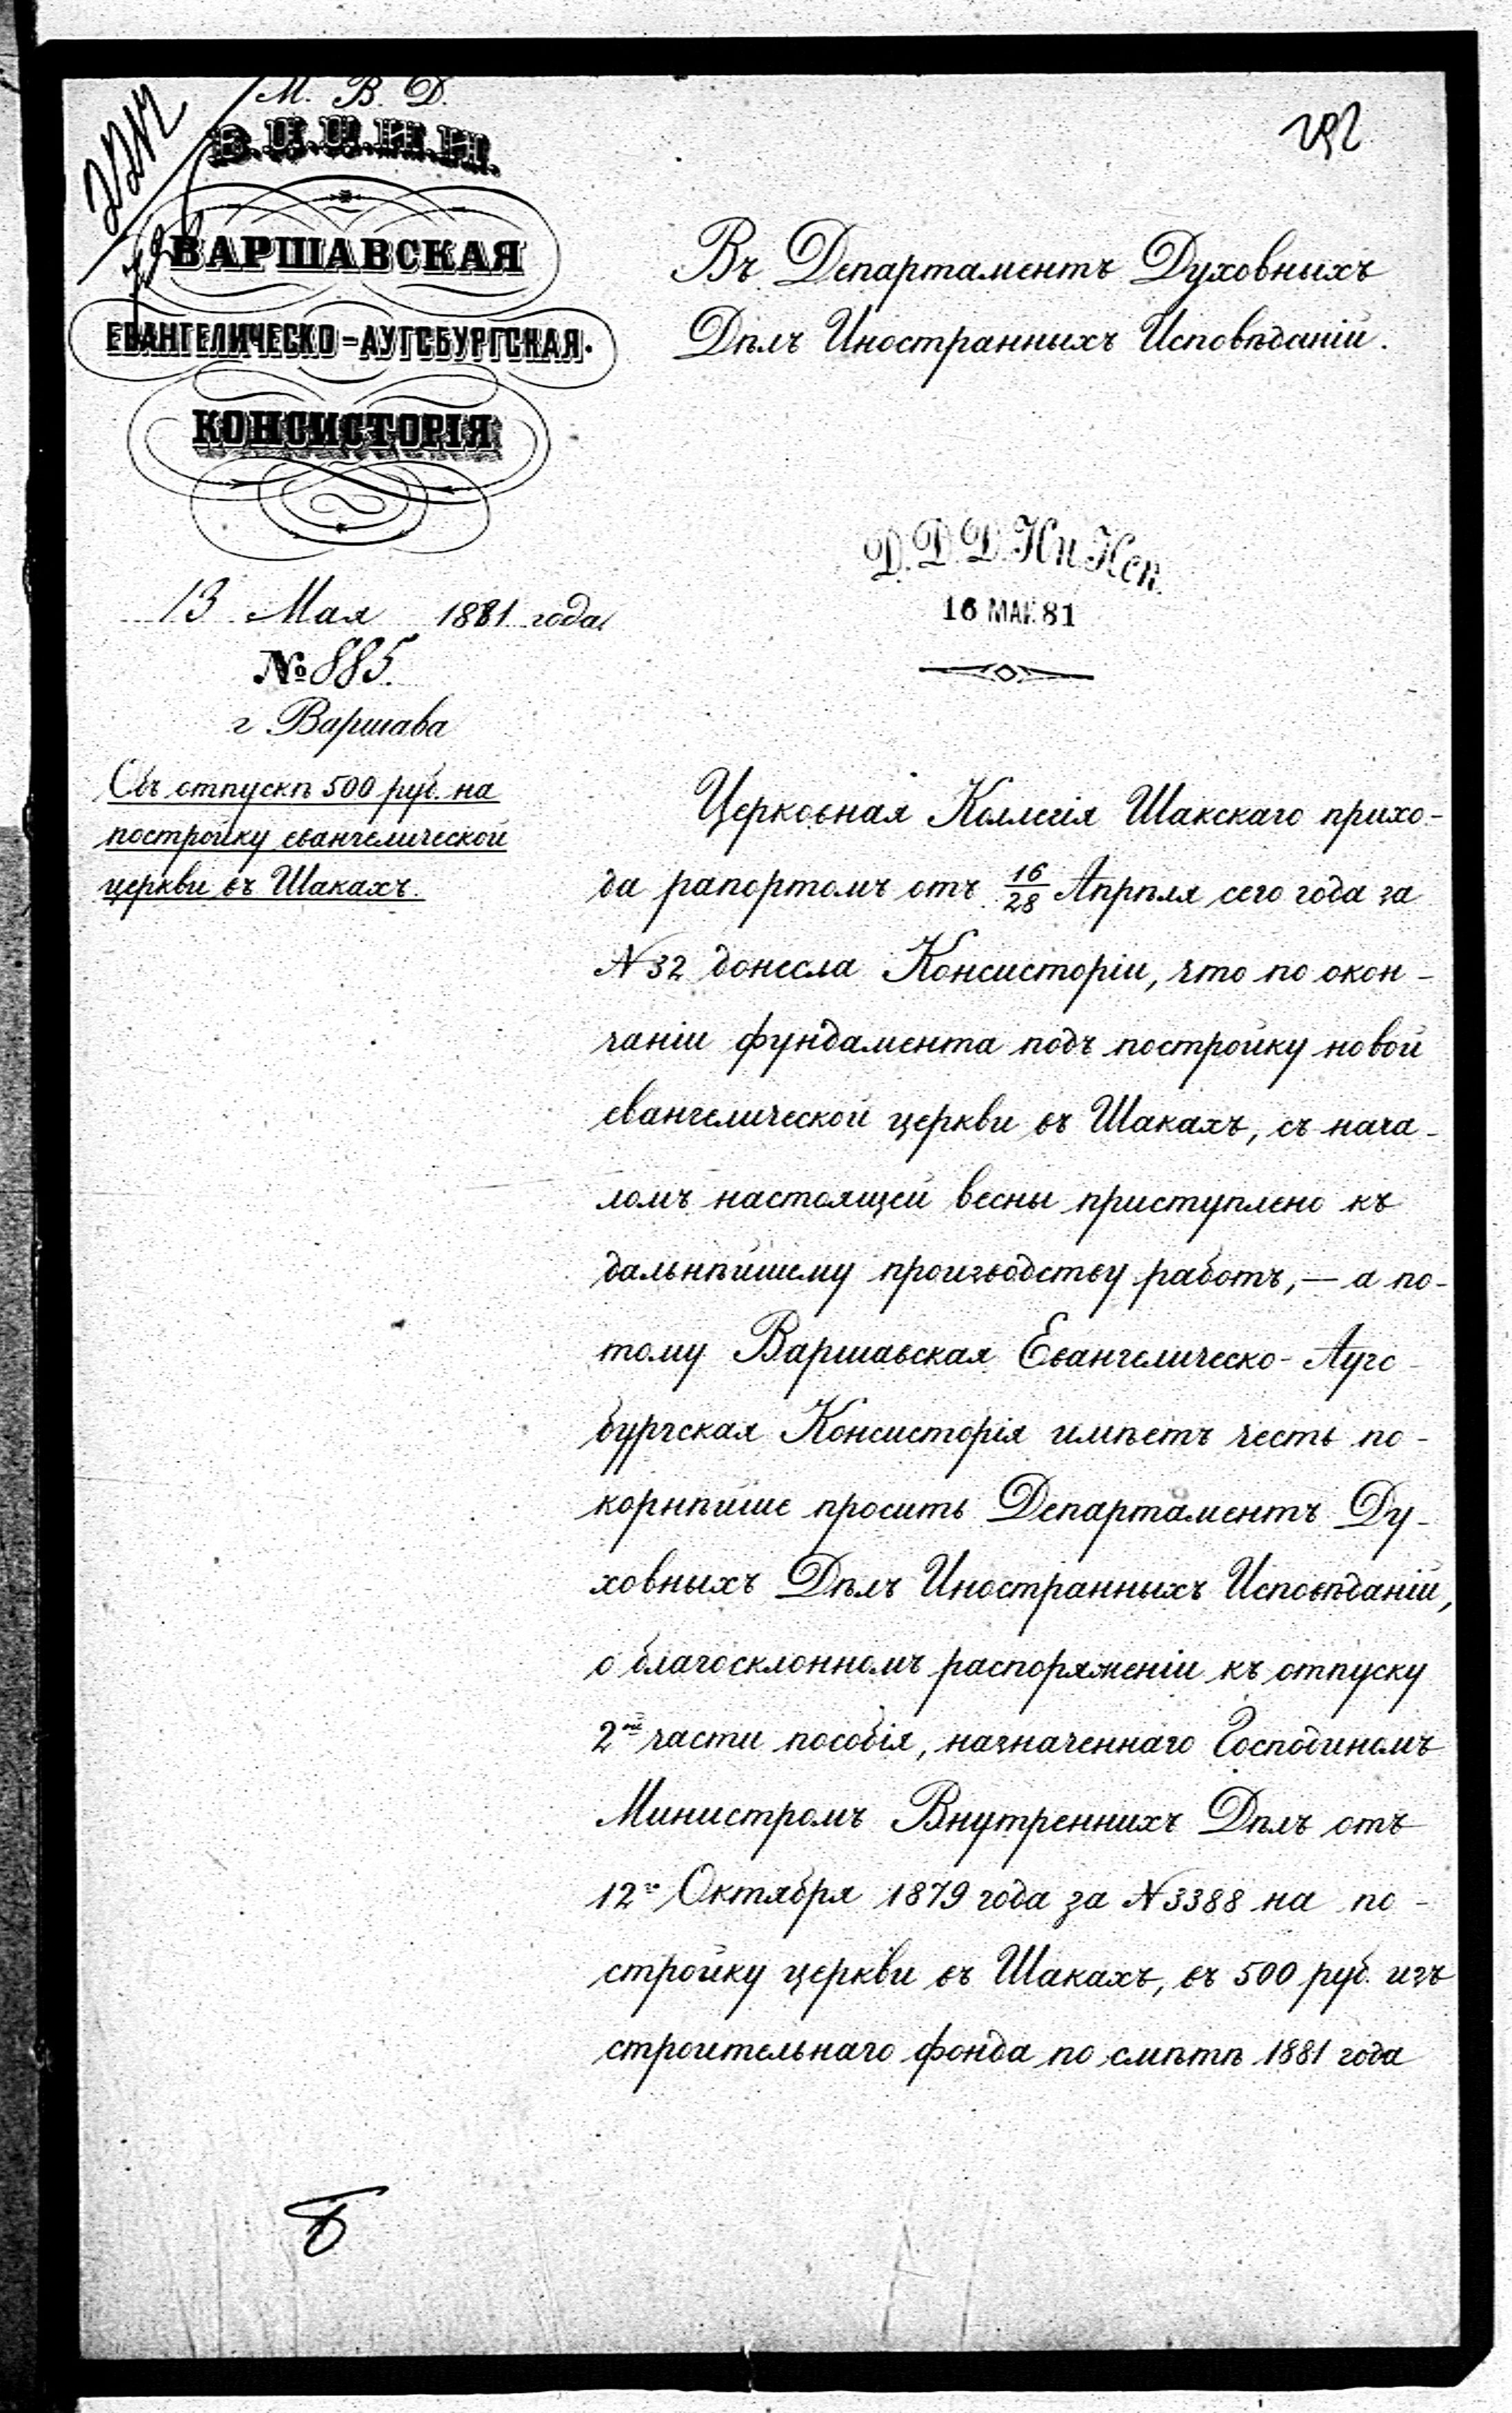 М. В. Д.
ВАРШАВСКАЯ
ЕВАНГЕЛИЧЕСКО-АУГСБУРГСКАЯ.
КОНСИСТОРІЯ
13 Мая 1881 года
№ 885.
г Варшава
Объ отпускѣ 500 руб. на
постройку евангелической
церкви въ Шакахъ.
Въ Департаментъ Духовныхъ
Дѣлъ Иностранныхъ Исповѣданій.
Д. Д. Д. Ин. Исп.
16 МАЯ. 81
Церковная Коллегія Шакскаго прихо-
да рапортомъ отъ 16/28 Апрѣля сего года за
N 32 донесла Консисторіи, что по окон-
чаніи фундамента подъ постройку новой
евангелической церкви въ Шакахъ, съ нача-
ломъ настоящей весны приступлено къ
дальнѣйшему производству работъ, — а по-
тому Варшавская Евангелическо-Аугс-
бургская Консисторія имѣетъ честь по-
корнѣйше просить Департаментъ Ду-
ховныхъ Дѣлъ Иностранныхъ Исповѣданій,
о благосклонномъ распоряженіи къ отпуску
2ой части пособія, назначеннаго Господиномъ
Министромъ Внутреннихъ Дѣлъ отъ
12го Октября 1879 года за N 3388 на по-
стройку церкви въ Шакахъ, въ 500 руб. изъ
строительнаго фонда по смѣтѣ 1881 года